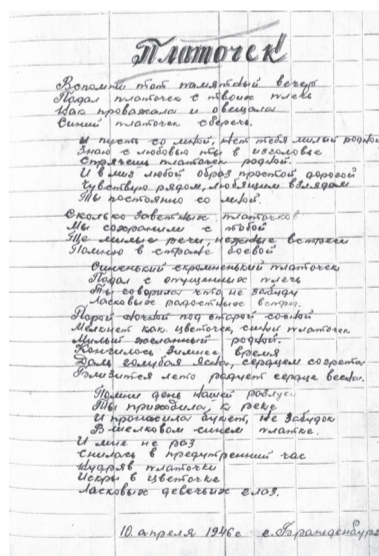 Платочек
Вспомни тот памятный вечер
Падал платочек с твоих плеч
Как проважала и овещала
Синий платочек сберечь.
И пусть со мной, нет тебя милый родной
Знаю с любовью ты в изголовье
Спрячешь платочек родной.
И в миз любой образ простой дорогой
Чувствую рядом, любящим взглядом
Ты постоянно со мной.
Сколько заветных платочков
Мы сохраним с тобой
Те милые речи, нежные встречи
Помню в стране боевой
Синенький скромненький платочек
Падал с опущенных плечь
Ты говорила что не забуду
Ласковых радостных встреч.
Порой ночной под старой сосной
Мелькнет как цветочек, синий платочек
Милый желанный родной.
Кончилось зимнее время
Даль голубая ясна, сердцем согрета
Близится лето радует сердце весна.
Помни день нашей разлуки
Ты приходила, к реке
И приносила букет, не забудок
В шелковом синем платке.
И мне не раз
снилась в предутренний час
Кудряв платочки
Искры в цветочке
Ласковых девечьих глаз.
10 апреля 1946г с.